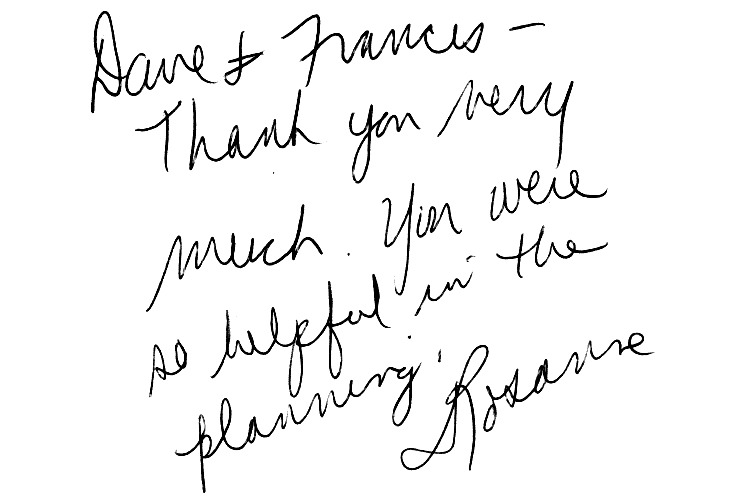 Dave & Frances -
Thank you very
much. You were
so helpful in the
planning.
Rosanne